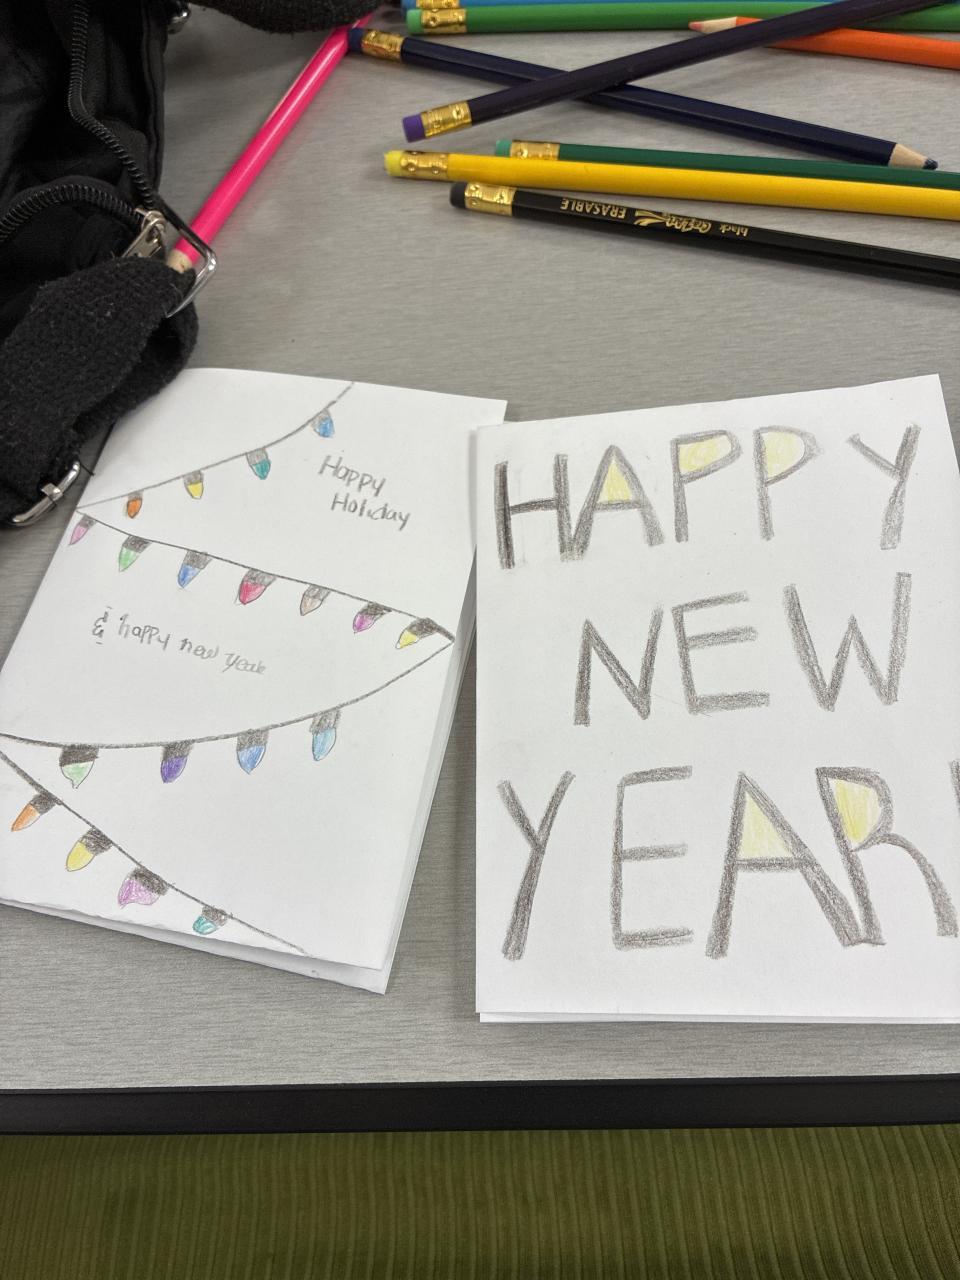 black Crayola ERASABLE
Happy
Holiday
& happy new year
HAPPY
NEW
YEAR!